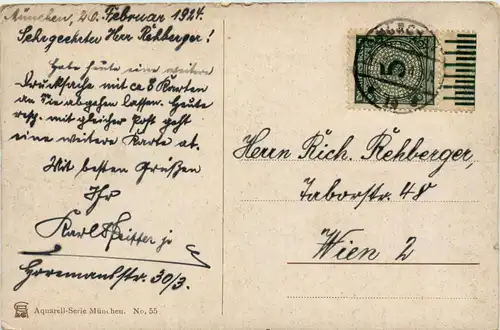 München, 20. Februar 1924.
Sehrgeehrter Herr Rehberger!
Habe heute eine weitere
Drucksache mit ca 8 Karten
an Sie abgehen lassen. Heute
resp. mit gleicher Post geht
eine weitere Karte ab.
Mit besten Grüßen
Ihr
Karl
Horemansstr. 30/3.
Aquarell-Serie München. No. 55
5
Herrn Rich. Rehberger,
Taborstr. 48
Wien 2